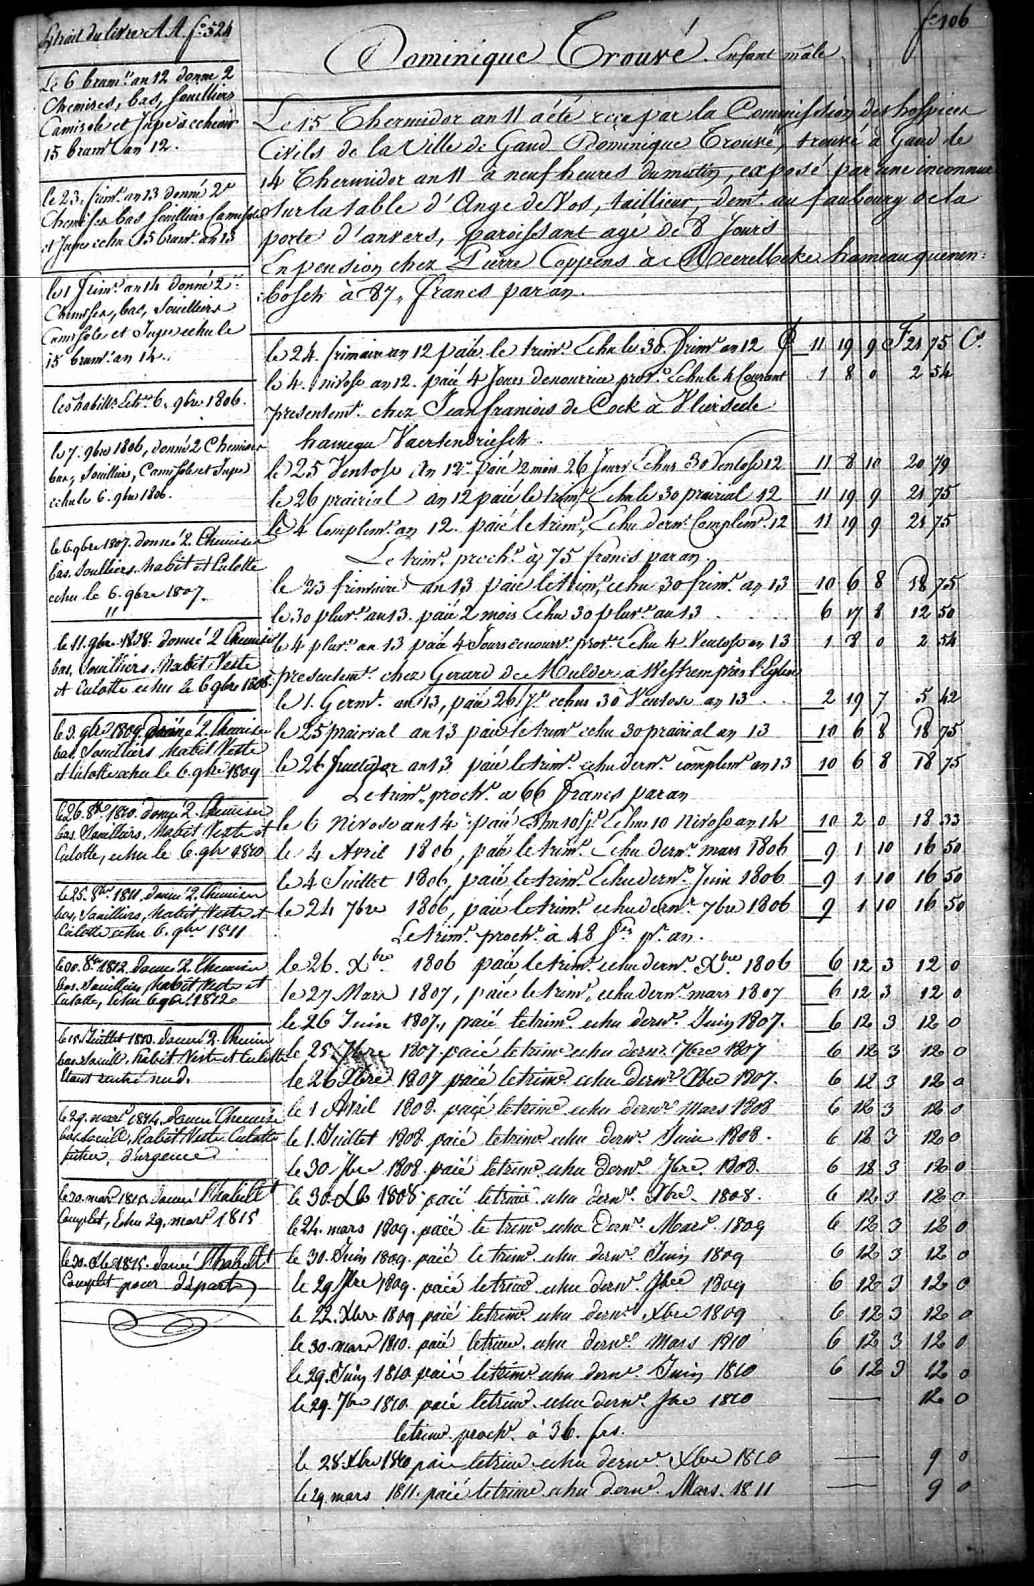 Extrait du livre A A. fo 524
fo 106
Dominique Trouvé. Enfant mâle.
Le 15 Thermidor an 11 a été reçu par la Commission des hospices
Civils de la Ville de Gand Dominique Trouvé, trouvé à Gand le
14 Thermidor an 11 a neuf heures du matin, exposé par une inconnue
sur la table d'Ange de Vos, taillieur, demt. au faubourg de la
porte d'anvers, paroissant agé de 8 Jours
En pension chez Pierre Coppens à Meerelbeke hameau quenen-
bosch à 87,, francs par an.
le 24. frimaire an 12 païé le trims. Echu le 30. frims. an 12 ₤ 11 19 9 F 21 75 Cs.
le 4. nivose an 12. païé 4 Jours denourrice provre. Echu le 4 Courant 1 8 0 2 54
presentemt. chez Jean franiois de Cock à Vlierzeele
hameau Vaertendriesch.
le 25 Ventose an 12. païé 2 mois 26 Jours Echus 30 Ventose 12 11 8 10 20 79
le 26 prairial an 12 païé le trims. Echu le 30 prairial 12 11 19 9 21 75
le 4 Complemt. an 12. païé le trims. Echu dernr. Complemt. 12 11 19 9 21 75
Le trims. proche. à 75 francs par an.
le 23 frimaire an 13 païé le trims. echu 30 frims. an 13 10 6 8 18 75
le 30 pluvs. an 13. païé 2 mois Echu 30 pluvs. an 13 6 17 8 12 50
le 4 pluvs. an 13 païé 4 Jours denourre. provre. Echu 4 Ventose an 13 1 8 0 2 54
presentemt. chez Gerard de Mulder a Westrem près l'Eglise
le 1. Germl. an 13, païé 26 Jrs. echus 30 Ventose an 13 2 19 7 5 42
le 25 prairial an 13 païé le trims. echu 30 prairial an 13 10 6 8 18 75
le 26 fructidor an 13 païé le trims. echu dernr. complemt. an 13 10 6 8 18 75
Le trims. proche. a 66 francs par an
le 6 Nivose an 14 païé 3 ms 10 Js. Echus 10 Nivose an 14 10 2 0 18 33
le 4 Avril 1806, païé le trims. Echu dernr. mars 1806 9 1 10 16 50
le 4 Juillet 1806, païé le trims. Echu dernr. Juin 1806 9 1 10 16 50
le 24 7bre 1806, païé le trims. echu dernr. 7bre 1806 9 1 10 16 50
Le trims. proche. à 48 frs. pr. an.
le 26. Xbre 1806 païé le trims. echu dernr. Xbre 1806 6 12 3 12 0
le 27 Mars 1807, païé le trims. echu dernr. mars 1807 6 12 3 12 0
le 26 Juin 1807, païé le trims. echu dernr. Juin 1807. 6 12 3 12 0
le 25 7bre 1807. païé le trims. echu dernr. 7bre 1807 6 12 3 12 0
le 26 Xbre 1807 païé le trims. echu dernr. Xbre 1807. 6 12 3 12 0
le 1 Avril 1808. païé le trims. echu dernr. mars 1808 6 12 3 12 0
le 1. Juillet 1808 païé le trims. echu dernr. Juin 1808. 6 12 3 12 0
le 30 7bre 1808. païé le trims. echu dernr. 7bre. 1808. 6 12 3 12 0
le 30. Xbre 1808. païé le trims. echu dernr. Xbre. 1808. 6 12 3 12 0
le 24. mars 1809. païé le trims. echu dernr. Mars. 1809 6 12 3 12 0
le 30. Juin 1809. païé le trims. echu dernr. Juin 1809 6 12 3 12 0
le 29 7bre 1809. païé le trims. echu dernr. 7bre 1809 6 12 3 12 0
le 22. Xbre 1809 païé le trims. echu dernr. Xbre 1809 6 12 3 12 0
le 30. mars 1810. païé le trims. echu dernr. Mars 1810 6 12 3 12 0
le 29. Juin 1810 païé le trims. echu dernr. Juin 1810 6 12 3 12 0
le 29. 7bre 1810. païé le trims. echu dernr. 7bre 1810 — 12 0
le trims. proche. à 36. frs.
le 28. Xbre 1810 païé le trims. echu dernr. Xbre 1810 — 9 0
le 29. mars 1811. païé le trims. echu dernr. Mars. 1811 — 9 0
Le 6 brumr. an 12 donné 2
Chemises, bas, souilliers
Camisole et Jupe à echeoir
15 brumr. an 12.
le 23. frims. an 13 donné 2
Chemises bas souilliers Camisole
et Jupe echu 15 brumr. an 13
le 1 frims. an 14 donné 2
Chemises, bas, Souilliers
Camisole et Jupe echu le
15 brumr. an 14.
les habillts. 6. 9bre 1806.
le 7. 9bre 1806, donné 2 Chemises
bas, souilliers, Camisole et Jupe
echu le 6. 9bre 1806.
le 6 9bre 1807. donné 2. Chemises
bas. Soulliers. habit et Culotte
echu le 6. 9bre 1807.
"
le 11. 9bre 1808. donné 2 Chemises
bas, Souilliers. Habit Veste
et Culotte echu le 6 9bre 1808
le 3. 9bre 1809. donné 2. Chemises
bas. Souilliers habit Veste
et Culotte echu le 6. 9bre 1809
le 26. 8bre 1810. donné 2. Chemises
bas. Souilliers, habit Veste et
Culotte, echu le 6. 9br 1810
le 25. 8bre 1811. donné 2. Chemises
bas, Souilliers, habit, Veste et
Culotte echu 6. 9br 1811
8bre 1812. donné 2. Chemises
bas. Souilliers, habit Veste et
Culotte, echu 6 9br 1812
le 15 Juillet 1813. donné 2. Chemises
bas Souill. habit Veste et Culotte
étant rentré nud.
le 29. mars 1814. donné Chemise
bas, souill., habit, Veste Culotte
d'urgence
le 20. mars 1815. donné l'habillt.
Complet, Echu 29. mars 1815
le 30. Xbre 1815. donné l'habillt.
Complet pour départ